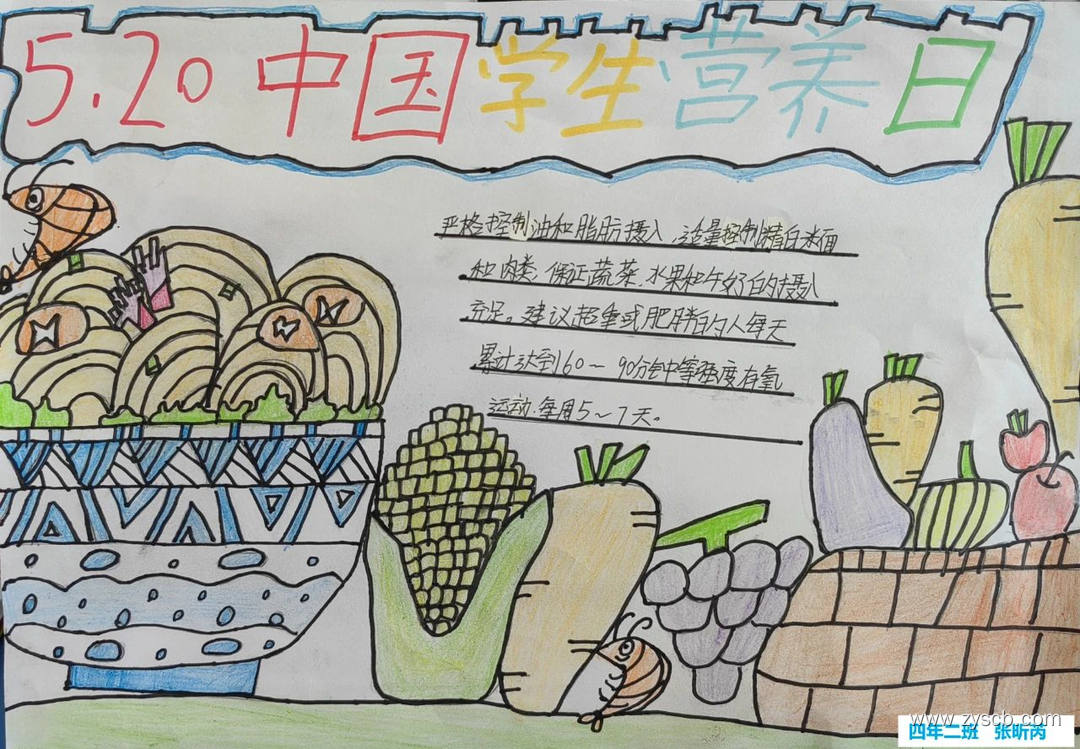 5.20中国学生营养日
严格控制油和脂肪摄入,适量控制精白米面
和肉类,保证蔬菜.水果和牛奶的摄入
充足。建议超重或肥胖的人每天
累计达到60~90分钟中等强度有氧
运动.每周5~7天。
www.zyscb.com
四年二班 张昕芮